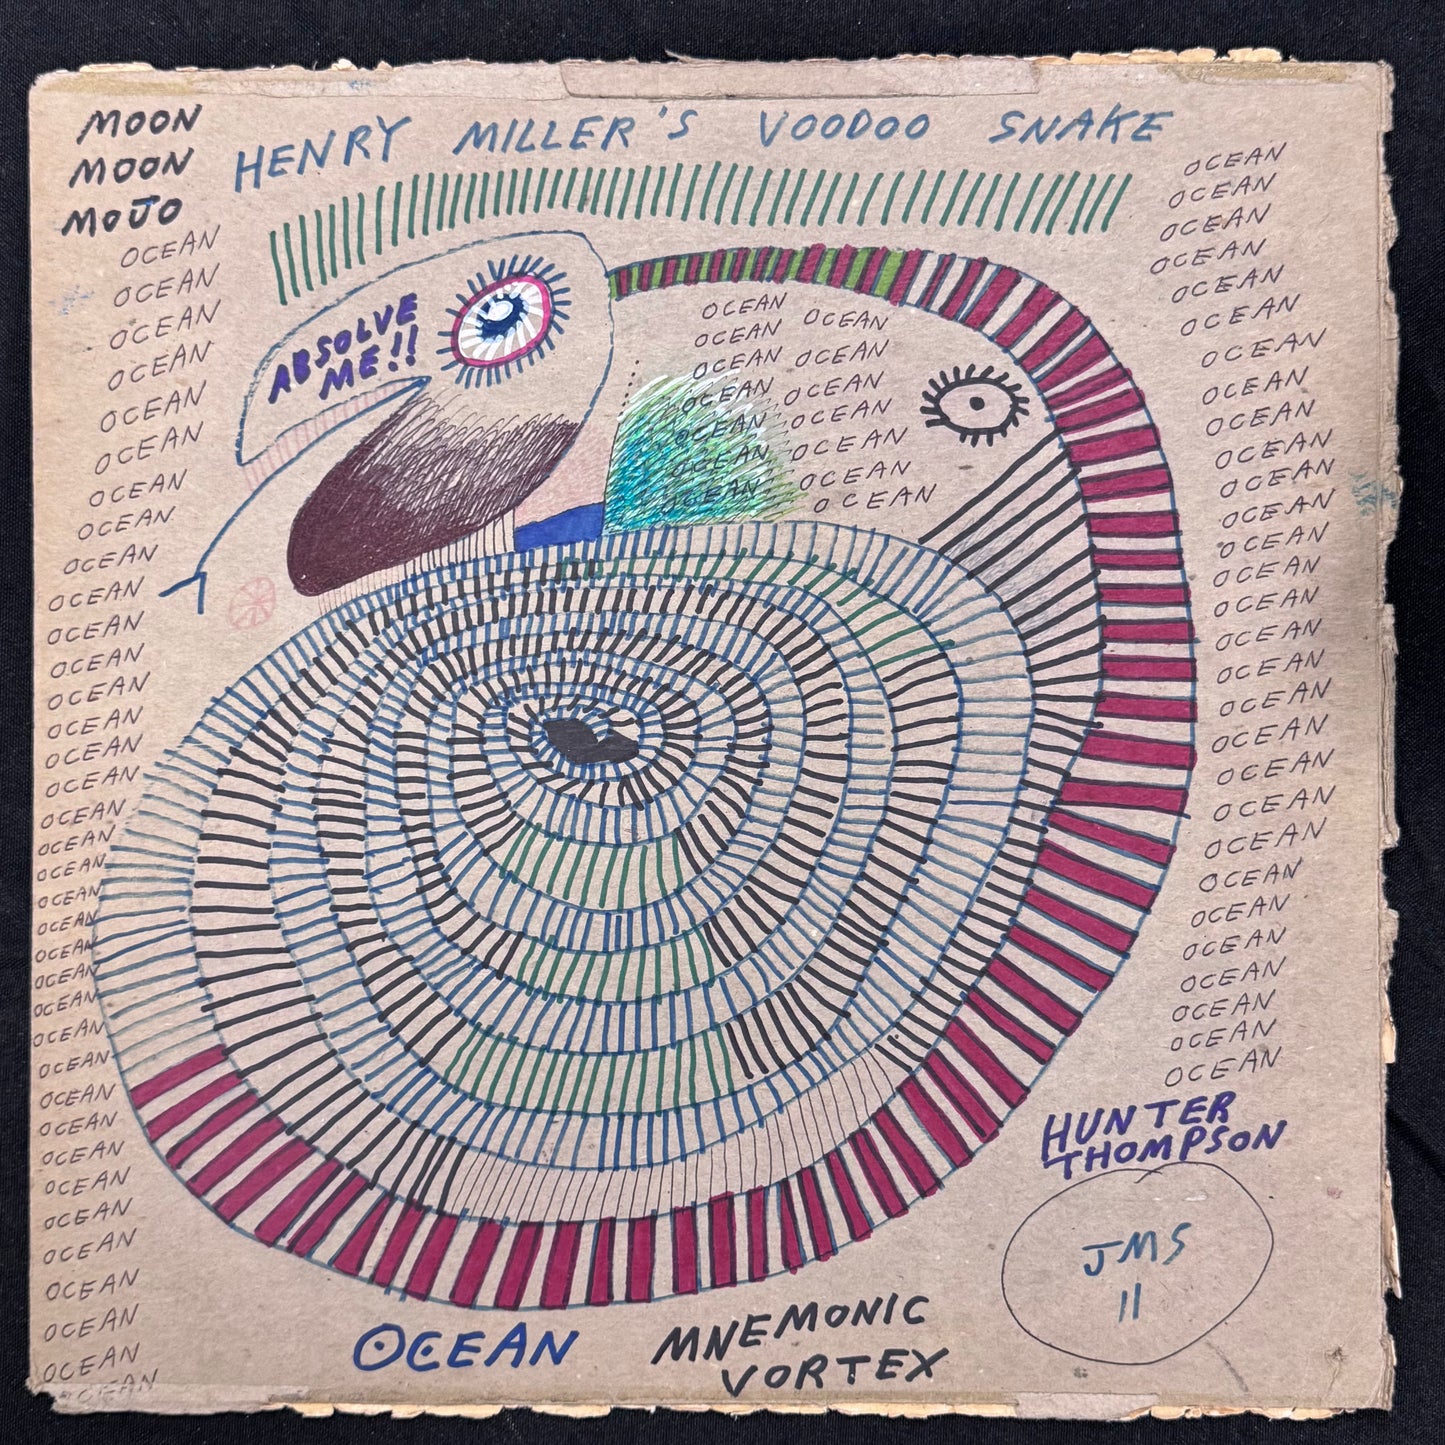 MOON
MOON
MOJO
HENRY MILLER'S VOODOO SNAKE
OCEAN
OCEAN
OCEAN
OCEAN
OCEAN
OCEAN
OCEAN
OCEAN
OCEAN
OCEAN
OCEAN
OCEAN
OCEAN
OCEAN
OCEAN
OCEAN
OCEAN
OCEAN
OCEAN
OCEAN
OCEAN
OCEAN
OCEAN
OCEAN
OCEAN
OCEAN
OCEAN
OCEAN
OCEAN
OCEAN
OCEAN
OCEAN
OCEAN
OCEAN
OCEAN
OCEAN
ABSOLVE
ME!!
OCEAN
OCEAN
OCEAN
OCEAN
OCEAN
OCEAN
OCEAN
OCEAN
OCEAN
OCEAN
OCEAN
OCEAN
OCEAN
OCEAN
OCEAN
OCEAN
OCEAN
OCEAN
OCEAN
OCEAN
OCEAN
OCEAN
OCEAN
OCEAN
OCEAN
OCEAN
OCEAN
OCEAN
OCEAN
OCEAN
OCEAN
OCEAN
OCEAN
OCEAN
OCEAN
OCEAN
OCEAN
OCEAN
OCEAN
OCEAN
OCEAN
OCEAN
OCEAN
HUNTER
THOMPSON
JMS
11
OCEAN
MNEMONIC
VORTEX